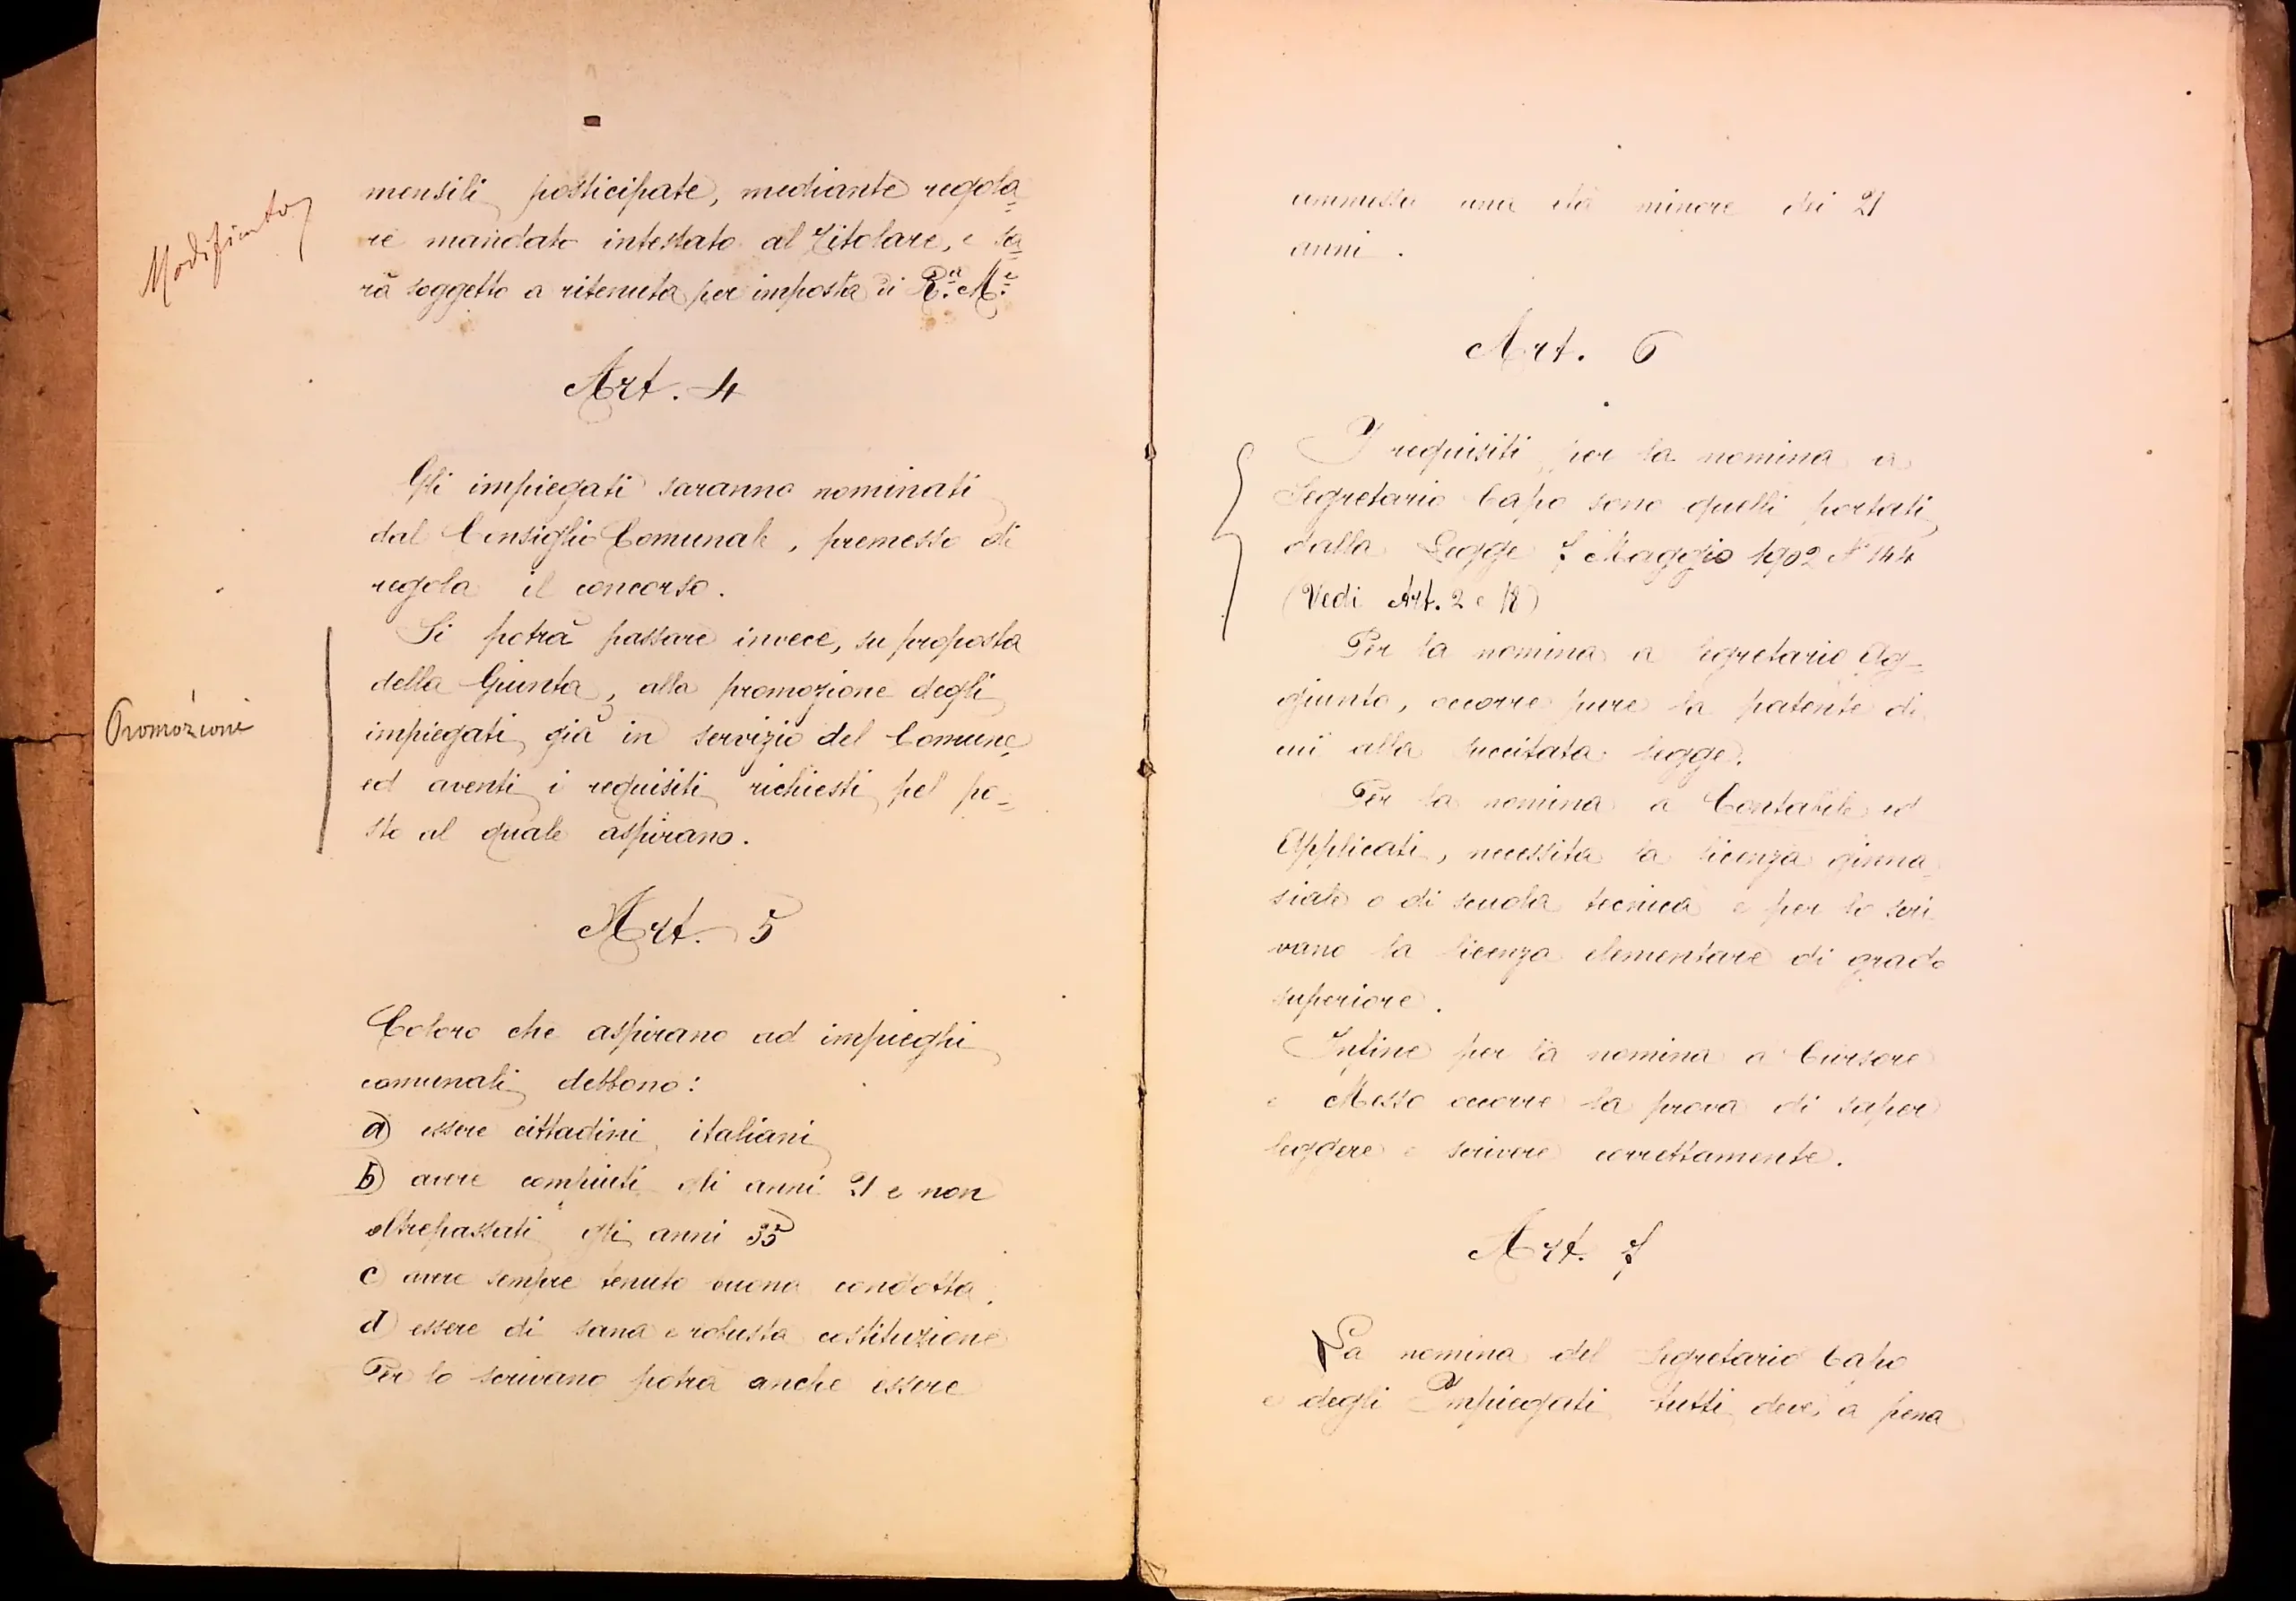 Modificato
mensili posticipate, mediante regola=
re mandato intestato al Titolare, e sa=
rà soggetto a ritenuta per imposta di R.a M.e
Art. 4
Gli impiegati saranno nominati
dal Consiglio Comunale, premesso di
regola il concorso.
Si potrà passare invece, su proposta
della Giunta, alla promozione degli
Promozioni
impiegati già in servizio del Comune,
ed aventi i requisiti richiesti pel po=
sto al quale aspirano.
Art. 5
Coloro che aspirano ad impieghi
comunali debbono:
a) essere cittadini italiani
b) avere compiuti gli anni 21 e non
oltrepassati gli anni 35
c) avere sempre tenuto buona condotta.
d) essere di sana e robusta costituzione
Per lo scrivano potrà anche essere
ammessa una età minore dei 21
anni.
Art. 6
I requisiti per la nomina a
Segretario Capo sono quelli portati
dalla Legge 7 Maggio 1902 N° 144
(Vedi Art. 2 e 18)
Per la nomina a Segretario Ag=
giunto, occorre pure la patente di
cui alla succitata legge.
Per la nomina a Contabile ed
Applicati, necessita la licenza ginna=
siale o di scuola tecnica e per lo scri=
vano la licenza elementare di grado
superiore.
Infine per la nomina a Cursore
e Messo occorre la prova di saper
leggere e scrivere correttamente.
Art. 7
La nomina del Segretario Capo
e degli Impiegati tutti deve, a pena